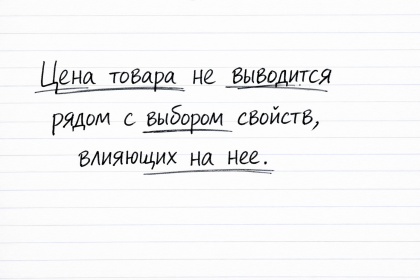 Цена товара не выводится
рядом с выбором свойств,
влияющих на нее.